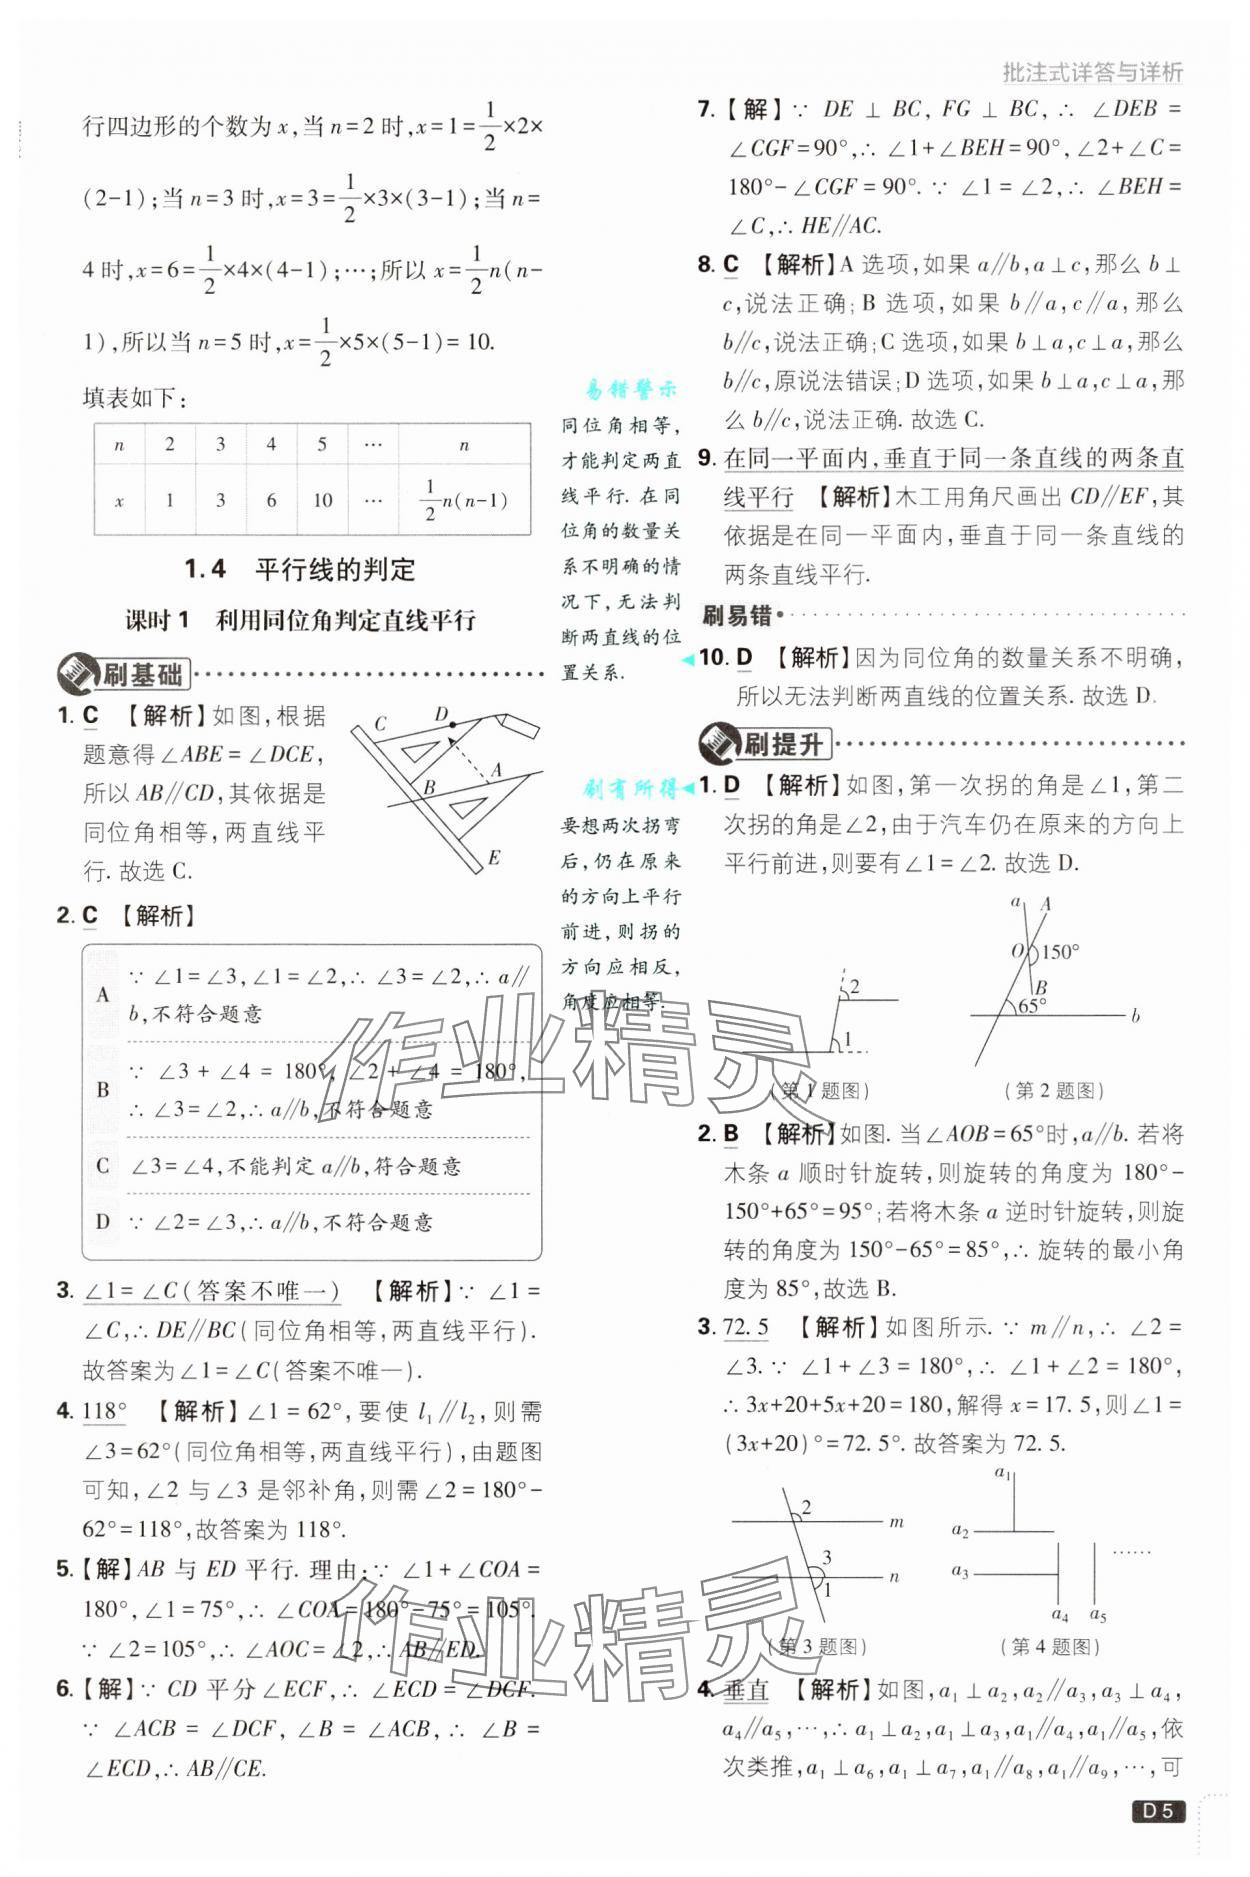 批注式详答与详析
行四边形的个数为 x,当 n=2 时,x=1=1/2×2×
(2-1);当 n=3 时,x=3=1/2×3×(3-1);当 n=
4 时,x=6=1/2×4×(4-1);…;所以 x=1/2n(n-
1),所以当 n=5 时,x=1/2×5×(5-1)=10.
填表如下:
n 2 3 4 5 … n
x 1 3 6 10 … 1/2n(n-1)
1.4 平行线的判定
课时1 利用同位角判定直线平行
刷基础
1. C 【解析】如图,根据
题意得∠ABE=∠DCE,
所以 AB∥CD,其依据是
同位角相等,两直线平
行. 故选 C.
C D A B E
2. C 【解析】
A ∵ ∠1=∠3,∠1=∠2,∴ ∠3=∠2,∴ a∥
b,不符合题意
B ∵ ∠3+∠4=180°,∠2+∠4=180°,
∴ ∠3=∠2,∴ a∥b,不符合题意
C ∠3=∠4,不能判定 a∥b,符合题意
D ∵ ∠2=∠3,∴ a∥b,不符合题意
3. ∠1=∠C(答案不唯一) 【解析】∵ ∠1=
∠C,∴ DE∥BC(同位角相等,两直线平行).
故答案为∠1=∠C(答案不唯一).
4. 118° 【解析】∠1=62°,要使 l₁∥l₂,则需
∠3=62°(同位角相等,两直线平行),由题图
可知,∠2 与∠3 是邻补角,则需∠2=180°-
62°=118°,故答案为 118°.
5.【解】AB 与 ED 平行. 理由:∵ ∠1+∠COA=
180°,∠1=75°,∴ ∠COA=180°-75°=105°.
∵ ∠2=105°,∴ ∠AOC=∠2,∴ AB∥ED.
6.【解】∵ CD 平分∠ECF,∴ ∠ECD=∠DCF.
∵ ∠ACB=∠DCF,∠B=∠ACB,∴ ∠B=
∠ECD,∴ AB∥CE.
易错警示
同位角相等,
才能判定两直
线平行. 在同
位角的数量关
系不明确的情
况下,无法判
断两直线的位
置关系.
刷有所得
要想两次拐弯
后,仍在原来
的方向上平行
前进,则拐的
方向应相反,
角度应相等.
7.【解】∵ DE⊥BC,FG⊥BC,∴ ∠DEB=
∠CGF=90°,∴ ∠1+∠BEH=90°,∠2+∠C=
180°-∠CGF=90°. ∵ ∠1=∠2,∴ ∠BEH=
∠C,∴ HE∥AC.
8. C 【解析】A 选项,如果 a∥b,a⊥c,那么 b⊥
c,说法正确;B 选项,如果 b∥a,c∥a,那么
b∥c,说法正确;C 选项,如果 b⊥a,c⊥a,那么
b∥c,原说法错误;D 选项,如果 b⊥a,c⊥a,那
么 b∥c,说法正确. 故选 C.
9. 在同一平面内,垂直于同一条直线的两条直
线平行 【解析】木工用角尺画出 CD∥EF,其
依据是在同一平面内,垂直于同一条直线的
两条直线平行.
刷易错
10. D 【解析】因为同位角的数量关系不明确,
所以无法判断两直线的位置关系. 故选 D.
刷提升
1. D 【解析】如图,第一次拐的角是∠1,第二
次拐的角是∠2,由于汽车仍在原来的方向上
平行前进,则要有∠1=∠2. 故选 D.
2 1
(第 1 题图)
a A O 150° B 65° b
(第 2 题图)
2. B 【解析】如图. 当∠AOB=65°时,a∥b. 若将
木条 a 顺时针旋转,则旋转的角度为 180°-
150°+65°=95°;若将木条 a 逆时针旋转,则旋
转的角度为 150°-65°=85°,∴ 旋转的最小角
度为 85°,故选 B.
3. 72.5 【解析】如图所示. ∵ m∥n,∴ ∠2=
∠3. ∵ ∠1+∠3=180°,∴ ∠1+∠2=180°,
∴ 3x+20+5x+20=180,解得 x=17.5,则∠1=
(3x+20)°=72.5°. 故答案为 72.5.
2 m 3 n 1
(第 3 题图)
a₁ a₂ a₃ a₄ a₅ ……
(第 4 题图)
4. 垂直 【解析】如图,a₁⊥a₂,a₂∥a₃,a₃⊥a₄,
a₄∥a₅,…,∴ a₁⊥a₂,a₁⊥a₃,a₁∥a₄,a₁∥a₅,依
次类推,a₁⊥a₆,a₁⊥a₇,a₁∥a₈,a₁∥a₉,…,可
作业精灵
作业精灵
D5